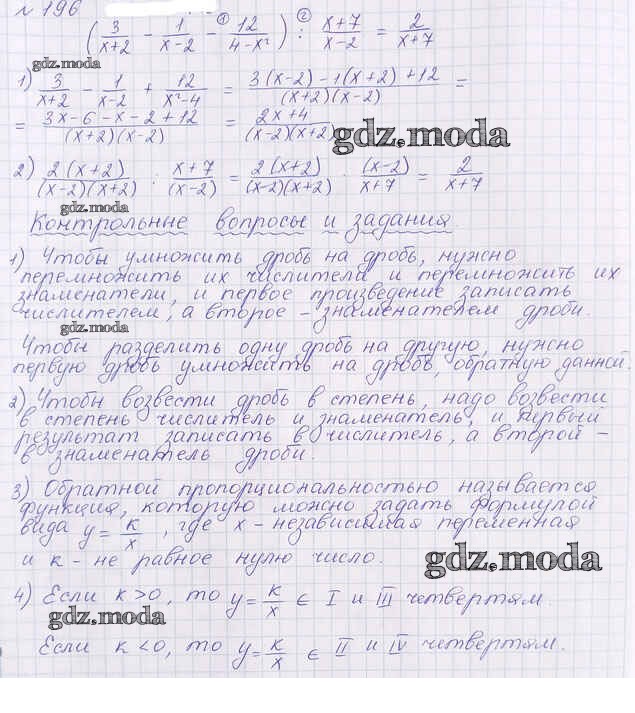 № 196
(3/(x+2) - 1/(x-2) -① 12/(4-x²)) :② (x+7)/(x-2) = 2/(x+7)
gdz.moda
1) 3/(x+2) - 1/(x-2) + 12/(x²-4) = (3(x-2)-1(x+2)+12)/((x+2)(x-2)) =
= (3x-6-x-2+12)/((x+2)(x-2)) = (2x+4)/((x-2)(x+2))
gdz.moda
2) 2(x+2)/((x-2)(x+2)) : (x+7)/(x-2) = 2(x+2)/((x-2)(x+2)) · (x-2)/(x+7) = 2/(x+7)
gdz.moda
Контрольные вопросы и задания.
1) Чтобы умножить дробь на дробь, нужно
перемножить их числители и перемножить их
знаменатели, и первое произведение записать
числителем, а второе - знаменателем дроби.
gdz.moda
Чтобы разделить одну дробь на другую, нужно
первую дробь умножить на дробь, обратную данной.
2) Чтобы возвести дробь в степень, надо возвести
в степень числитель и знаменатель, и первый
результат записать в числитель, а второй -
в знаменатель дроби.
3) Обратной пропорциональностью называется
функция, которую можно задать формулой
вида y = k/x, где x - независимая переменная
и k - не равное нулю число.
gdz.moda
4) Если k>0, то y = k/x ∈ I и III четвертям.
gdz.moda
Если k<0, то y = k/x ∈ II и IV четвертям.